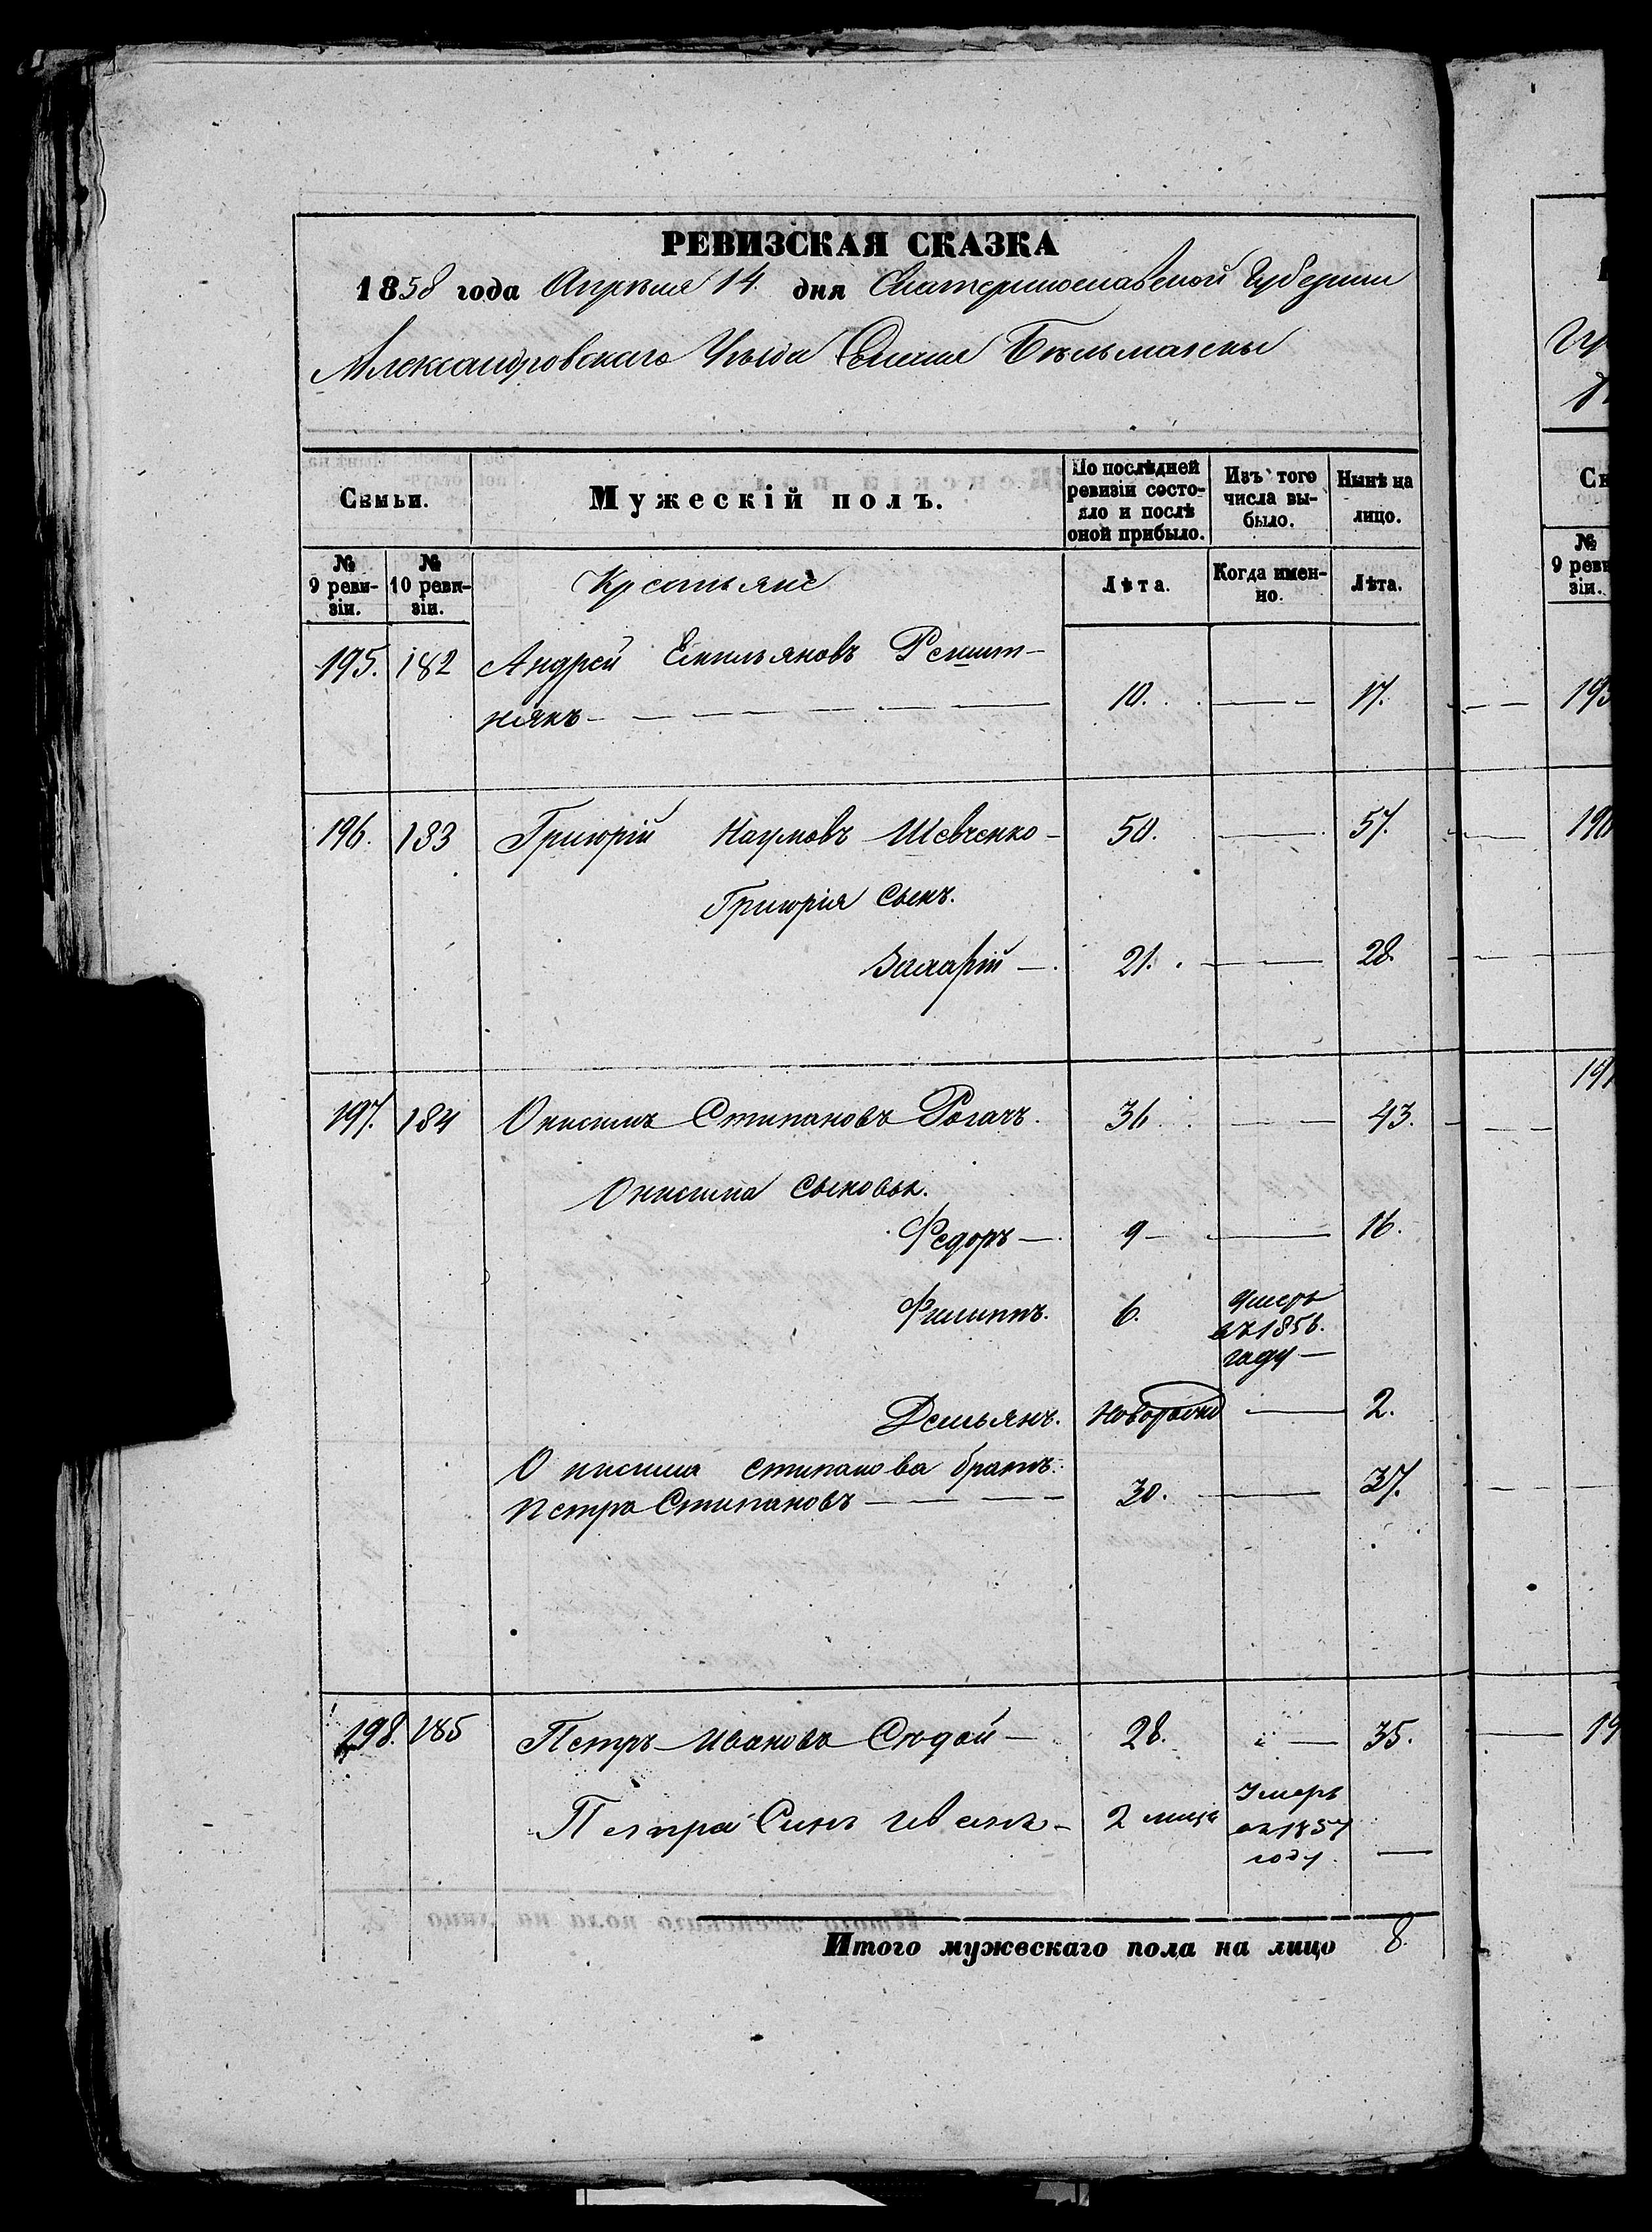 РЕВИЗСКАЯ СКАЗКА
1858 года Апрѣля 14. дня Екатеринославской Губерніи
Александровскаго Уѣзда Селенія Бѣльманки
Семьи.
Мужескій полъ.
По послѣдней ревизіи состояло и послѣ оной прибыло.
Изъ того числа выбыло.
Нынѣ на лицо.
№ 9 ревизіи.
№ 10 ревизіи.
Крестьяне
Лѣта.
Когда именно.
Лѣта.
195. 182 Андрей Емильяновъ Решит-
някъ 10. — 17.
196. 183 Григорій Наумовъ Шевченко 50. — 57.
Григорія сынъ.
Захарій — 21. — 28.
197. 184 Онисимъ Степановъ Рогачъ. 36 — 43.
Онисима сыновья.
Федоръ — 9 — 16.
Филиппъ. 6. Умеръ
въ 1856.
году —
Демьянъ. Новорожд — 2.
Онисима степанова братъ.
Петръ Степановъ — 30. — 37.
198. 185 Петръ Ивановъ Сѣдой — 28. — 35.
Петра Синъ Иванъ — 2 мица Умеръ
въ 1857
году. —
Итого мужескаго пола на лицо 8.
Гу
Се
№
9 реви
зіи.
193
196
197
19